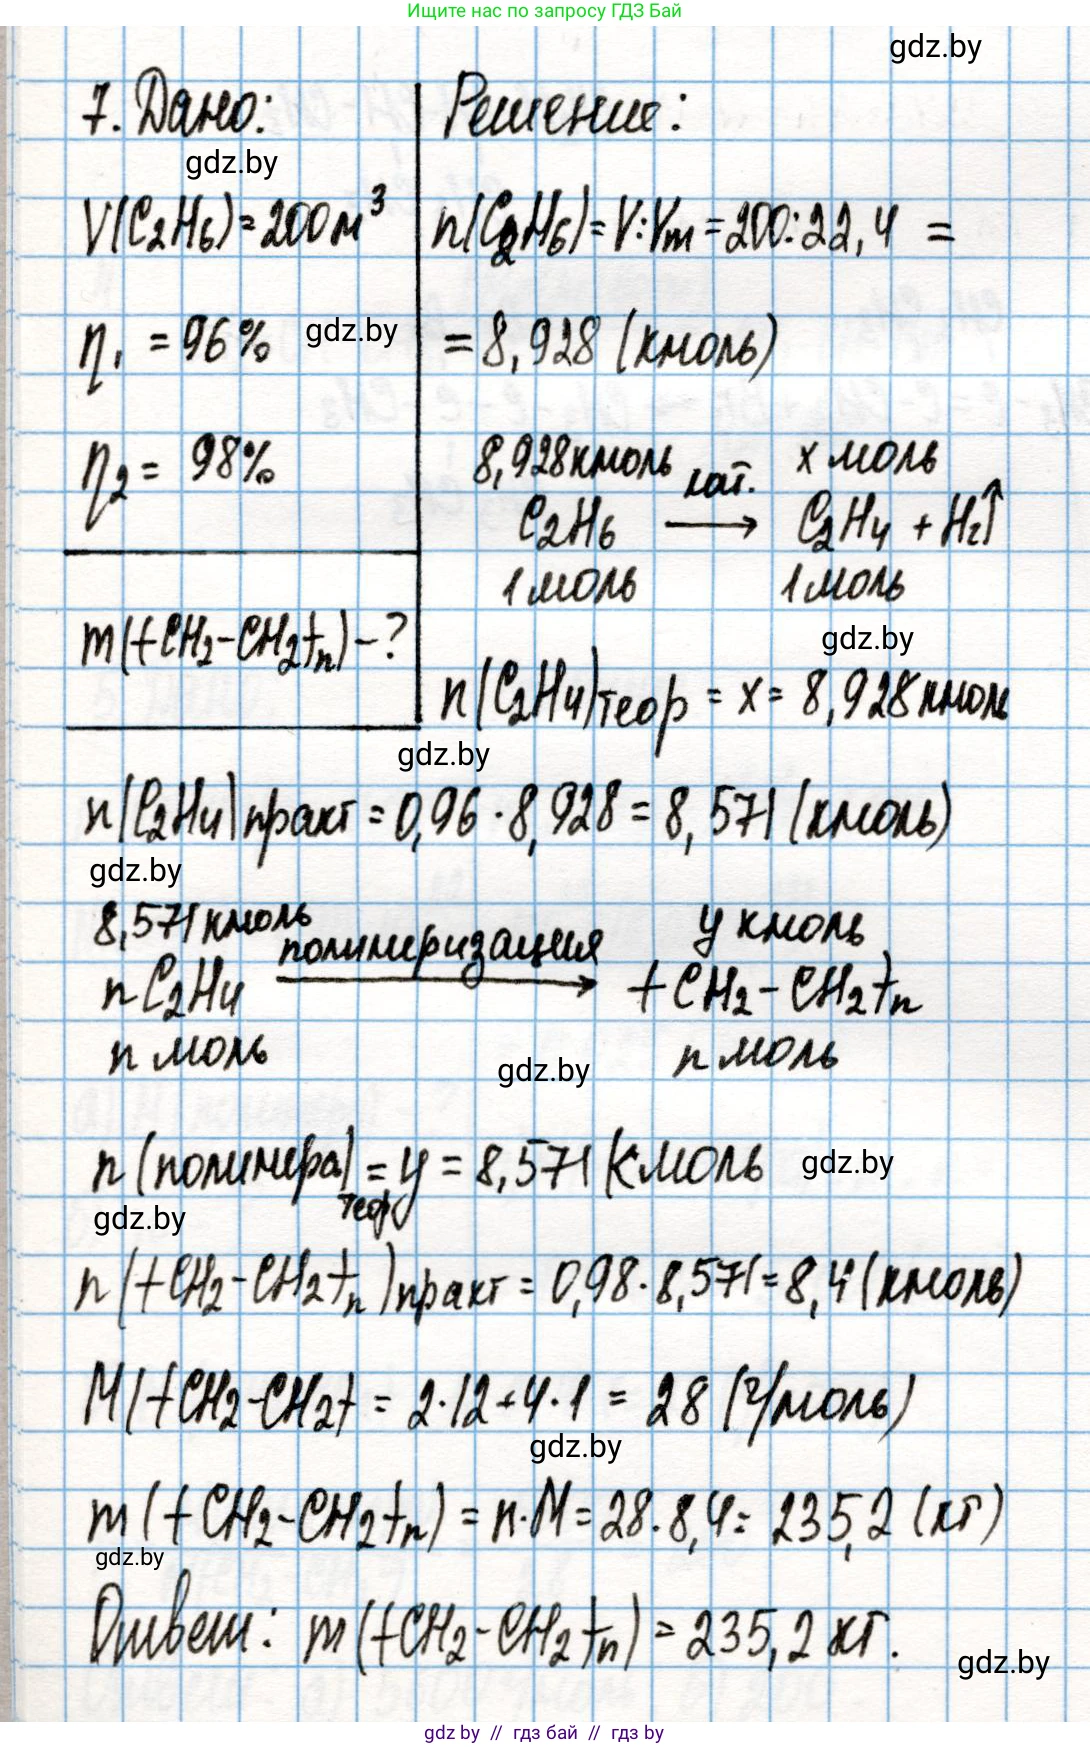 Ищите нас по запросу ГДЗ Бай
gdz.by
7. Дано:
gdz.by
V(C₂H₆) = 200 м³
η₁ = 96%
gdz.by
η₂ = 98%
m(-(CH₂-CH₂)-ₙ) - ?
Решение:
n(C₂H₆) = V:Vm = 200:22,4 =
= 8,928 (кмоль)
8,928 кмоль x моль
C₂H₆ кат. → C₂H₄ + H₂↑
1 моль 1 моль
gdz.by
n(C₂H₄)теор = x = 8,928 кмоль
gdz.by
n(C₂H₄)практ = 0,96 · 8,928 = 8,571 (кмоль)
gdz.by
8,571 кмоль y кмоль
nC₂H₄ полимеризация → -(CH₂-CH₂)-ₙ
n моль n моль
gdz.by
n(полимера)теор = y = 8,571 (кмоль
gdz.by
gdz.by
n(-(CH₂-CH₂)-ₙ)практ = 0,98 · 8,571 = 8,4 (кмоль)
M(-(CH₂-CH₂)- = 2·12+4·1 = 28 (г/моль)
gdz.by
m(-(CH₂-CH₂)-ₙ) = n·M = 28·8,4 = 235,2 (кг)
gdz.by
Ответ: m(-(CH₂-CH₂)-ₙ) = 235,2 кг.
gdz.by
gdz by // гдз бай // гдз by